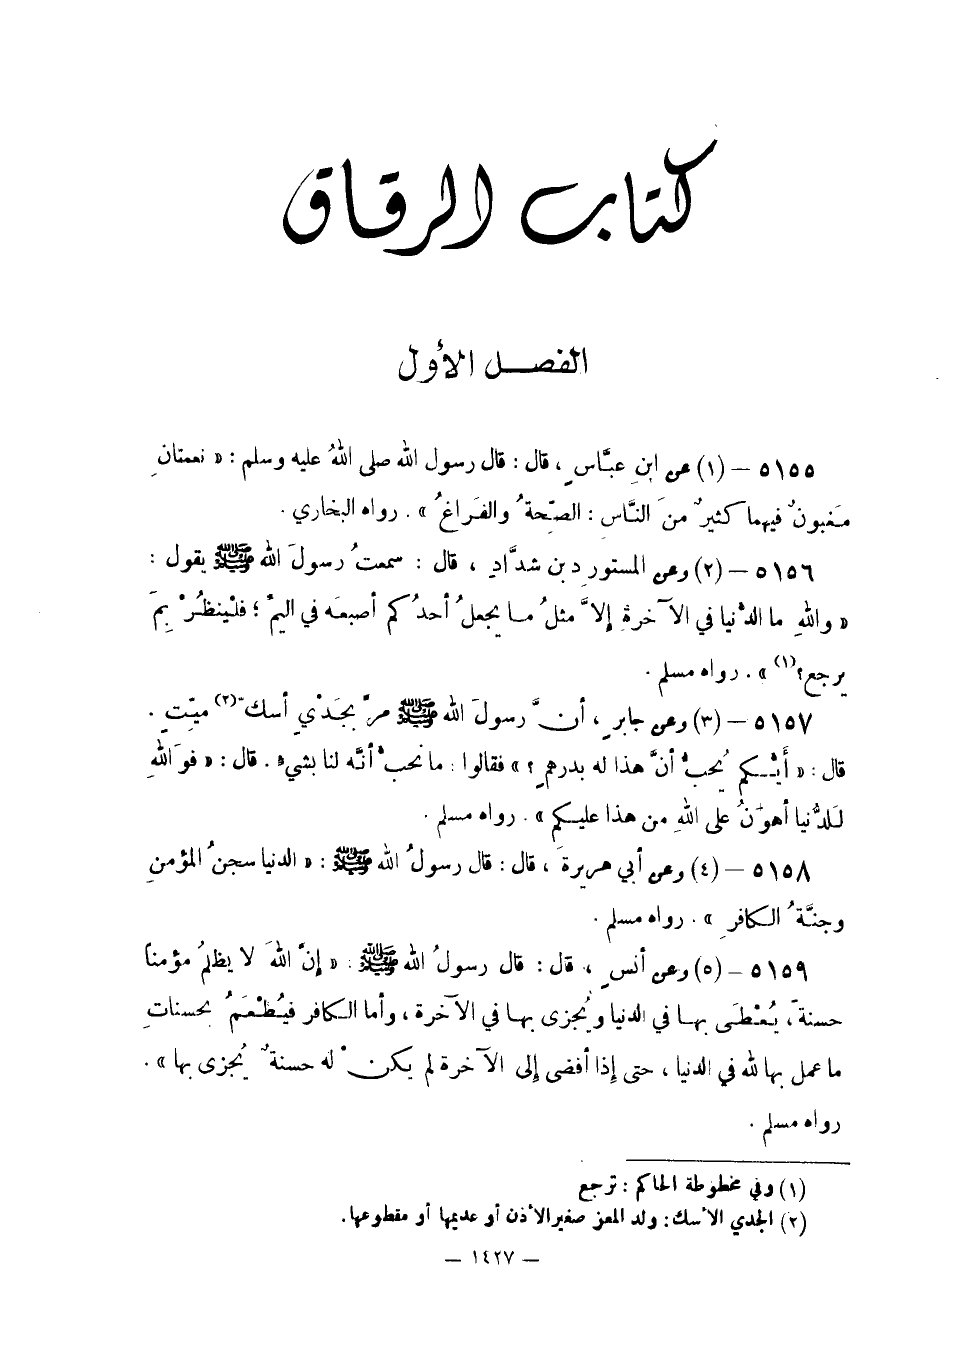 كتاب الرقاق
الفصل الأول
٥١٥٥ – (١) عن ابنِ عبَّاسٍ، قال: قال رسول الله صلى اللهُ عليه وسلم: « نعمتانِ
مَغبونٌ فيهما كثيرٌ منَ النَّاسِ: الصّحةُ والفَراغُ ». رواه البخاري.
٥١٥٦ – (٢) وعن المستوردِ بن شدَّادٍ، قال: سمعتُ رسولَ الله ﷺ يقول:
« واللهِ ما الدُّنيا في الآخرةِ إلاَّ مثلُ ما يجعلُ أحدُكم أصبعَه في اليمِّ؛ فلْينظُرْ بِمَ
يرجع؟(١) ». رواه مسلم.
٥١٥٧ – (٣) وعن جابرٍ، أنَّ رسولَ الله ﷺ مرَّ بجَدْيٍ أسكَّ(٢) ميّتٍ.
قال: « أَيُّكم يُحبُّ أنَّ هذا له بدرهمٍ؟ » فقالوا: ما نحبُّ أنَّه لنا بشيء. قال: « فوَاللهِ
لَلدُّنيا أهوَنُ على اللهِ من هذا عليكم ». رواه مسلم.
٥١٥٨ – (٤) وعن أبي هريرةَ، قال: قال رسولُ الله ﷺ: « الدنيا سجنُ المؤمنِ
وجنَّةُ الكافرِ ». رواه مسلم.
٥١٥٩ – (٥) وعن أنسٍ، قال: قال رسولُ الله ﷺ: « إنَّ اللهَ لا يظلمُ مؤمناً
حسنةً، يُعْطَى بها في الدنيا ويُجزى بها في الآخرة، وأما الكافر فيُطْعَمُ بحسناتِ
ما عمل بها لله في الدنيا، حتى إذا أفضى إلى الآخرة لم يكنْ له حسنةٌ يُجزى بها ».
رواه مسلم.
(١) وفي مخطوطة الحاكم: ترجع
(٢) الجدي الأسك: ولد المعز صغير الأذن أو عديمها أو مقطوعها.
– ١٤٢٧ –